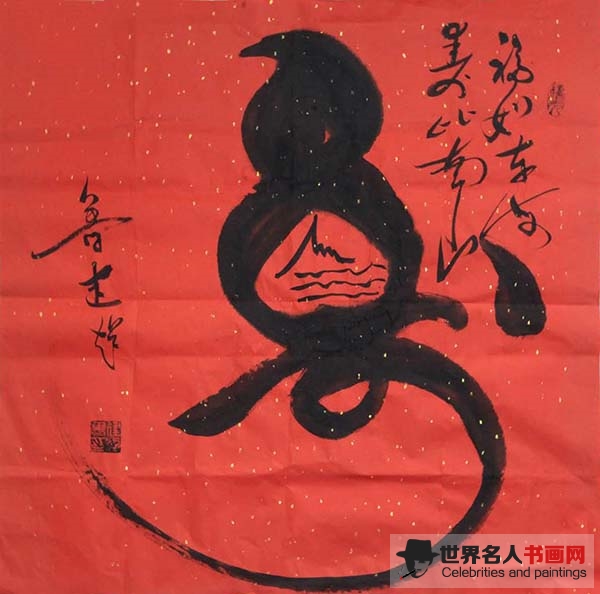 福如东海
寿比南山
寿
鲁
世界名人书画网
Celebrities and paintings